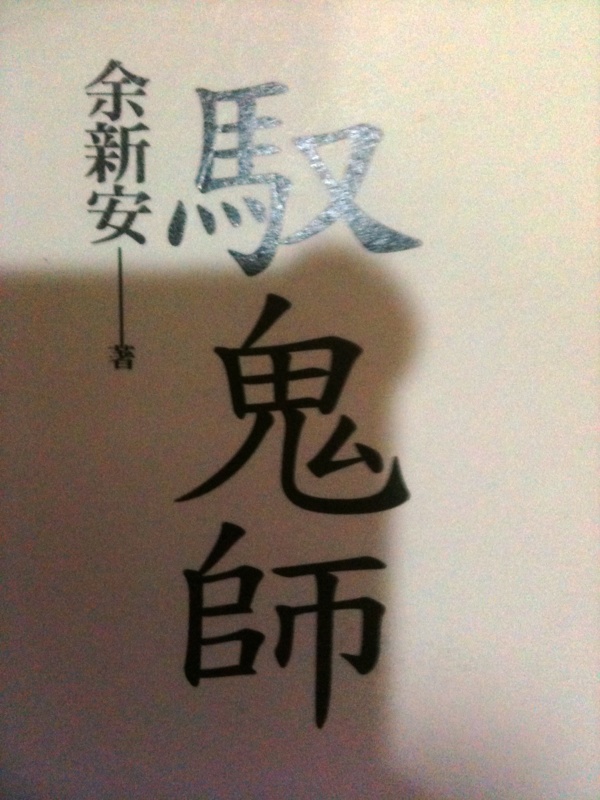 馭鬼師
余新安——著